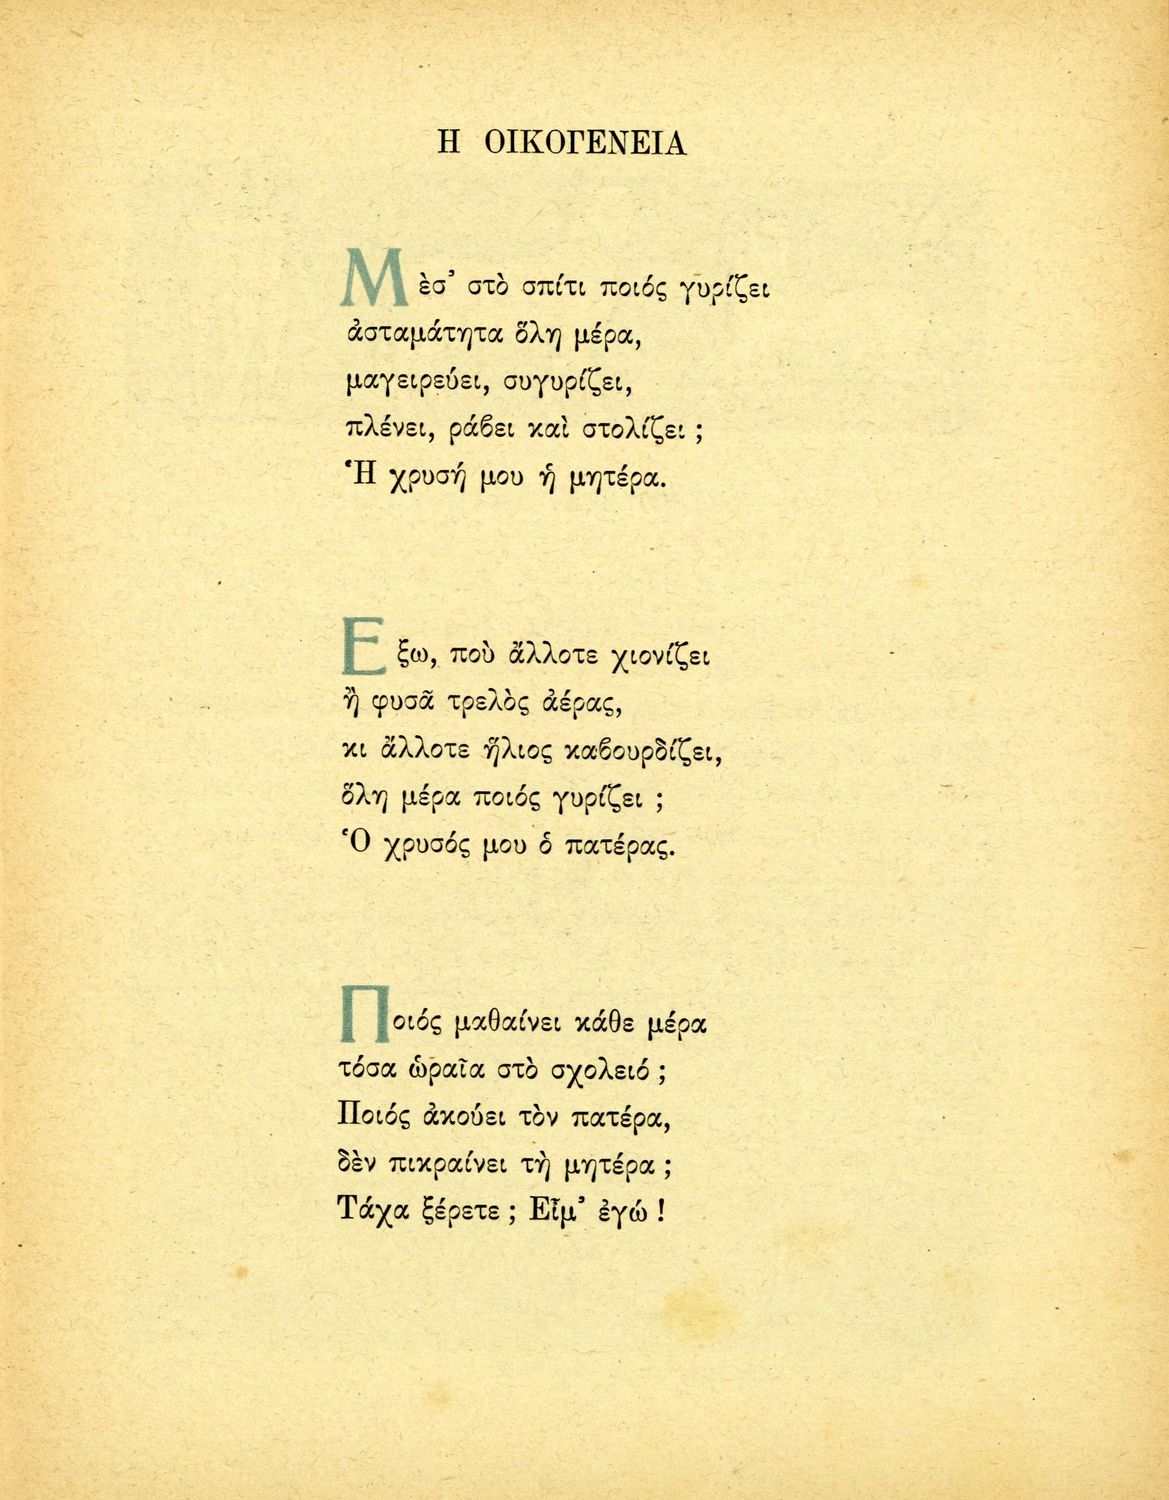 Η ΟΙΚΟΓΕΝΕΙΑ
Μὲσ’ στὸ σπίτι ποιός γυρίζει
ἀσταμάτητα ὅλη μέρα,
μαγειρεύει, συγυρίζει,
πλένει, ράβει καὶ στολίζει ;
Ἡ χρυσή μου ἡ μητέρα.
Εξω, ποὺ ἄλλοτε χιονίζει
ἢ φυσᾶ τρελὸς ἀέρας,
κι ἄλλοτε ἥλιος καβουρδίζει,
ὅλη μέρα ποιός γυρίζει ;
Ὁ χρυσός μου ὁ πατέρας.
Ποιός μαθαίνει κάθε μέρα
τόσα ὡραῖα στὸ σχολειό ;
Ποιός ἀκούει τὸν πατέρα,
δὲν πικραίνει τὴ μητέρα ;
Τάχα ξέρετε ; Εἶμ’ ἐγώ !